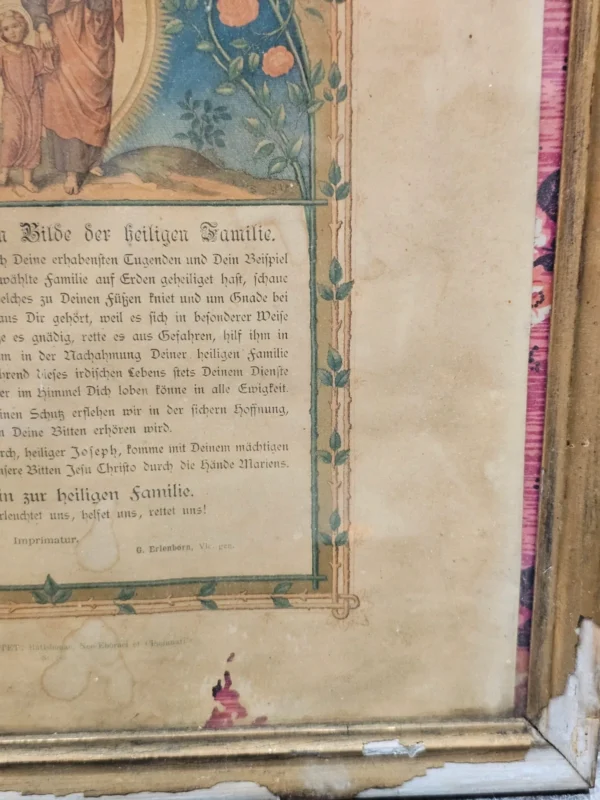 Bilde der heiligen Familie.
Deine erhabensten Tugenden und Dein Beispiel
wählte Familie auf Erden geheiliget hast, schaue
elches zu Deinen Füßen kniet und um Gnade bei
aus Dir gehört, weil es sich in besonderer Weise
es gnädig, rette es aus Gefahren, hilf ihm in
in der Nachahmung Deiner heiligen Familie
hrend dieses irdischen Lebens stets Deinem Dienste
er im Himmel Dich loben könne in alle Ewigkeit.
inen Schutz erflehen wir in der sichern Hoffnung,
Deine Bitten erhören wird.
rch, heiliger Joseph, komme mit Deinem mächtigen
nsere Bitten Jesu Christo durch die Hände Mariens.
in zur heiligen Familie.
rleuchtet uns, helfet uns, rettet uns!
Imprimatur.
G. Erlenborn, Vic. gen.